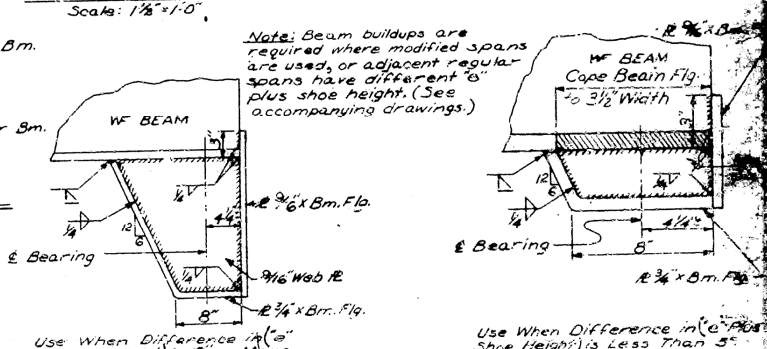 Scale: 1½"=1'-0"
Bm.
Note: Beam buildups are
required where modified spans
are used, or adjacent regular
spans have different "e"
plus shoe height. (See
accompanying drawings.)
Bm.
WF BEAM
3"
¼
4¼"
℄ Bearing
12
6
¼
¼
8"
℞ 9/16" x Bm. Flg.
9/16" Web ℞
℞ ¾" x Bm. Flg.
Use When Difference in ("e"
℞ 9/16" x Bm.
WF BEAM
Cope Beam Flg.
to 3½" Width
3"
12
6
¼
¼
4¼"
8"
℄ Bearing
℞ ¾" x Bm. Flg.
Use When Difference in ("e" Plus
Shoe Height) is Less Than 5"